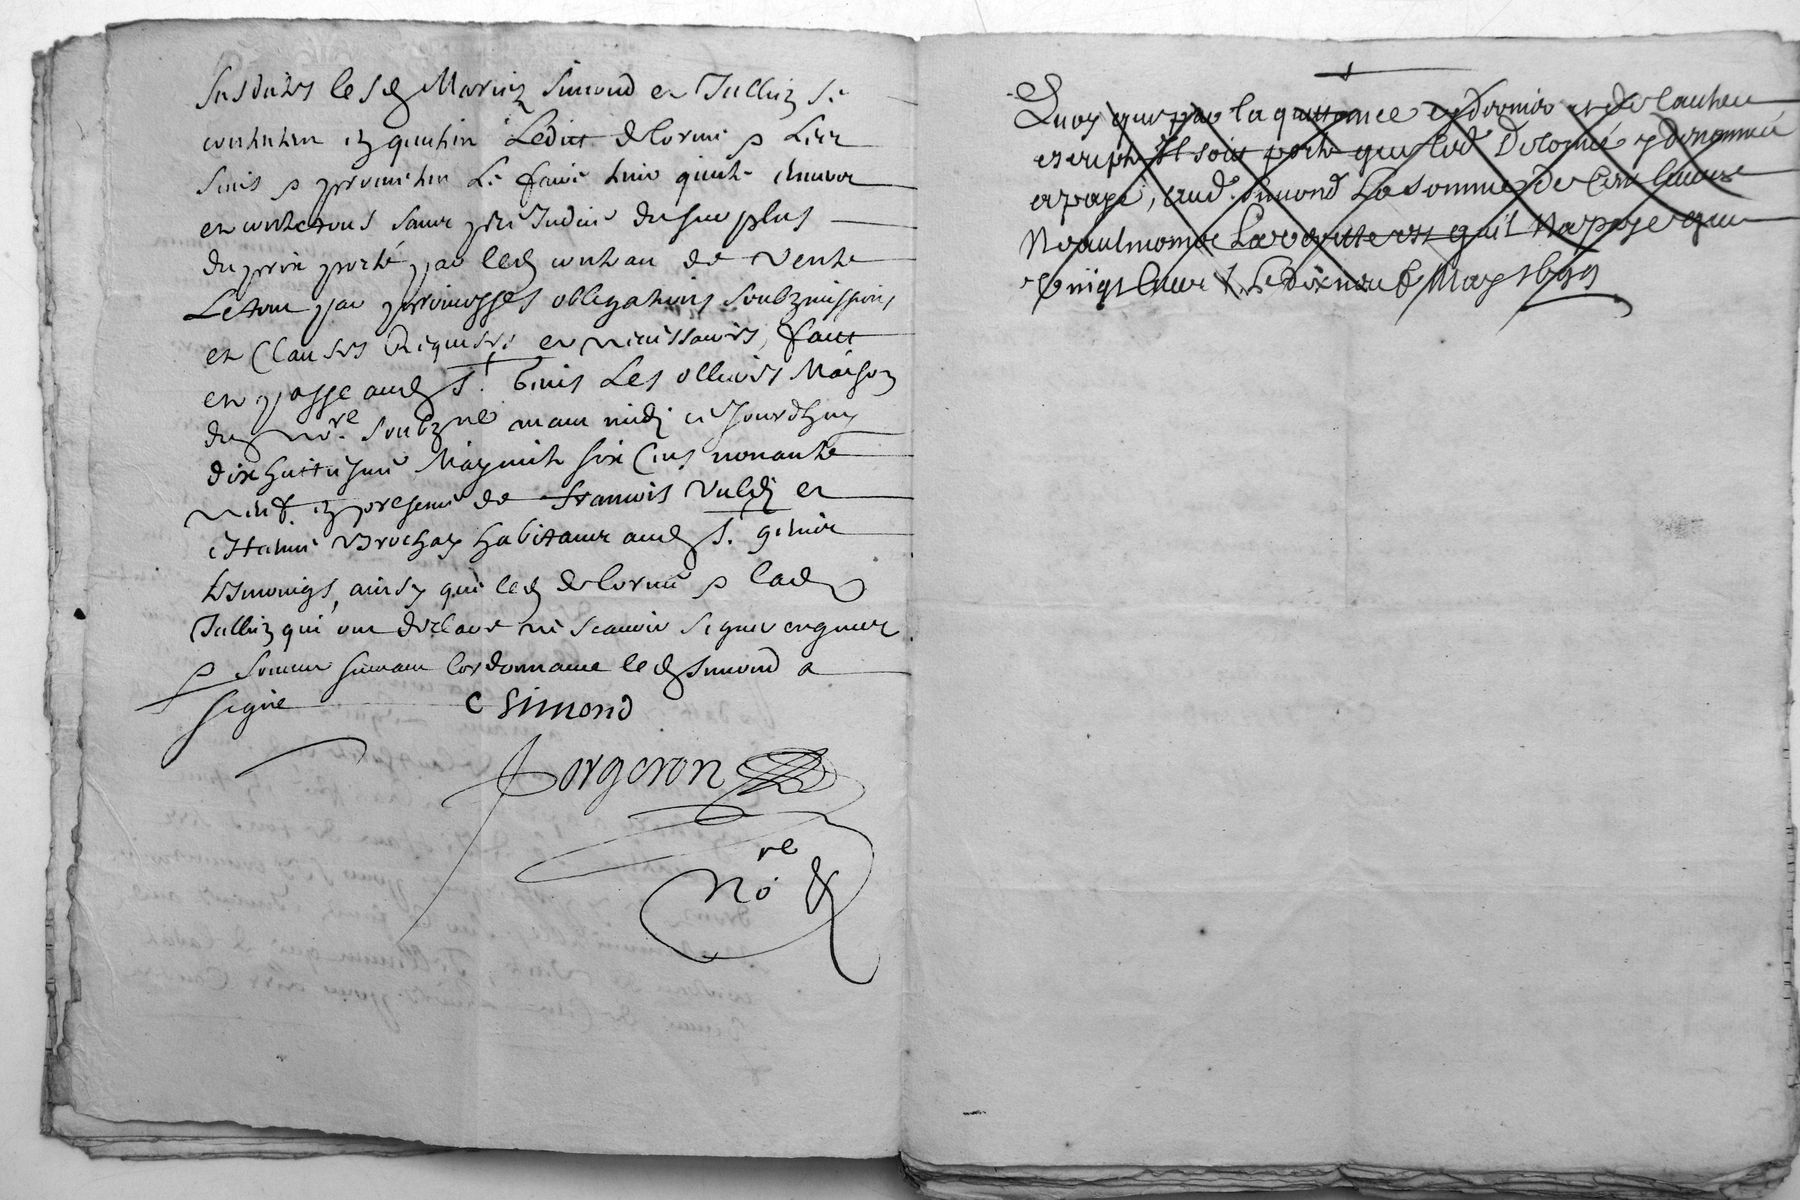 susdites led Mariez Simond et Jullin se
contenten en quictan ledict delorme p Lien
Siens p promettan Le faire tenir quicte envers
et contre tous sauve prejudice du surplus
du prix porté par led contrau de vente
Le tout par promesses obligations soubzmissions
et Clauses Requises et necessaires, faict
et passe aud St. Genis Les ollieres Maison
du nore. soubzne avant midi ce Jourdhuy
dix huictiesme May mil six Cens nonante
neuf en presence de francois Valdi et
estienne Brochay habitans aud St. genis
tesmoings, ainsy que led delorme p lad
Jullin qui ont declare ne scavoir signer enquis
p Somm suivant lordonnance led Simond a
signé
C Simond
Forgeron
Nore
Quoy que par la quittance cy derniere et de lautre
escripte Il soit porté que led Delorme y denommé
a payé, aud. Simond La somme de Cent livres
Neantmoins La verité est quil Na payé que
Vingt livres Le dixneuf May 1699